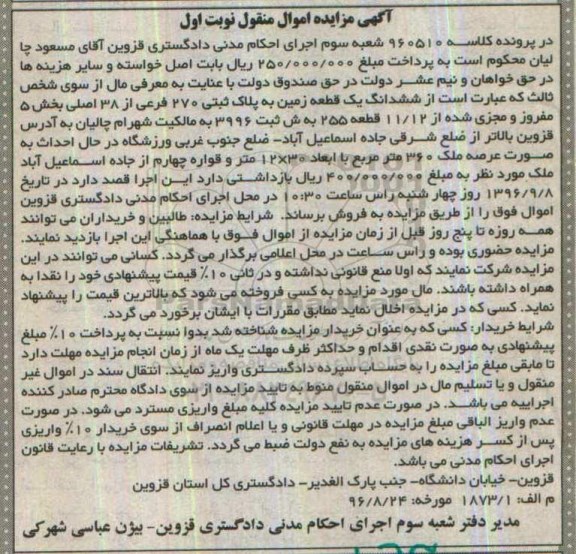 آگهی مزایده اموال منقول نوبت اول
در پرونده کلاسه ۹۶۰۵۱۰ شعبه سوم اجرای احکام مدنی دادگستری قزوین آقای مسعود چا
لیان محکوم است به پرداخت مبلغ ۲۵۰/۰۰۰/۰۰۰ ریال بابت اصل خواسته و سایر هزینه ها
در حق خواهان و نیم عشر دولت در حق صندوق دولت با عنایت به معرفی مال از سوی شخص
ثالث که عبارت است از ششدانگ یک قطعه زمین به پلاک ثبتی ۲۷۰ فرعی از ۳۸ اصلی بخش ۵
مفروز و مجزی شده از ۱۱/۱۲ قطعه ۲۵۵ به ش ثبت ۳۹۹۶ به مالکیت شهرام چالیان به آدرس
قزوین بالاتر از ضلع شرقی جاده اسماعیل آباد- ضلع جنوب غربی ورزشگاه در حال احداث به
صورت عرصه ملک ۳۶۰ متر مربع با ابعاد ۳۰×۱۲ متر و قواره چهارم از جاده اسماعیل آباد
ملک مورد نظر به مبلغ ۴۰۰/۰۰۰/۰۰۰ ریال بازداشتی دارد این اجرا قصد دارد در تاریخ
۱۳۹۶/۹/۸ روز چهار شنبه رأس ساعت ۱۰:۳۰ در محل اجرای احکام مدنی دادگستری قزوین
اموال فوق را از طریق مزایده به فروش برساند. شرایط مزایده: طالبین و خریداران می توانند
همه روزه تا پنج روز قبل از زمان مزایده از اموال فوق با هماهنگی این اجرا بازدید نمایند.
مزایده حضوری بوده و راس ساعت در محل اعلامی برگذار می گردد. کسانی می توانند در این
مزایده شرکت نمایند که اولا منع قانونی نداشته و در ثانی ۱۰٪ قیمت پیشنهادی خود را نقدا به
همراه داشته باشند. مال مورد مزایده به کسی فروخته می شود که بالاترین قیمت را پیشنهاد
نماید. کسی که در مزایده اخلال نماید مطابق مقررات با ایشان برخورد می گردد.
شرایط خریدار: کسی که به عنوان خریدار مزایده شناخته شد بدوا نسبت به پرداخت ۱۰٪ مبلغ
پیشنهادی به صورت نقدی اقدام و حداکثر ظرف مهلت یک ماه از زمان انجام مزایده مهلت دارد
تا مابقی مبلغ مزایده را به حساب سپرده دادگستری واریز نمایند. انتقال سند در اموال غیر
منقول و یا تسلیم مال در اموال منقول منوط به تایید مزایده از سوی دادگاه محترم صادر کننده
اجراییه می باشد. در صورت عدم تایید مزایده کلیه مبلغ واریزی مسترد می شود. در صورت
عدم واریز الباقی مبلغ مزایده در مهلت قانونی و یا اعلام انصراف از سوی خریدار ۱۰٪ واریزی
پس از کسر هزینه های مزایده به نفع دولت ضبط می گردد. تشریفات مزایده با رعایت قانون
اجرای احکام مدنی می باشد.
قزوین- خیابان دانشگاه- جنب پارک الغدیر- دادگستری کل استان قزوین
م الف: ۱۸۷۳/۱ مورخه: ۹۶/۸/۲۴
مدیر دفتر شعبه سوم اجرای احکام مدنی دادگستری قزوین- بیژن عباسی شهرکی